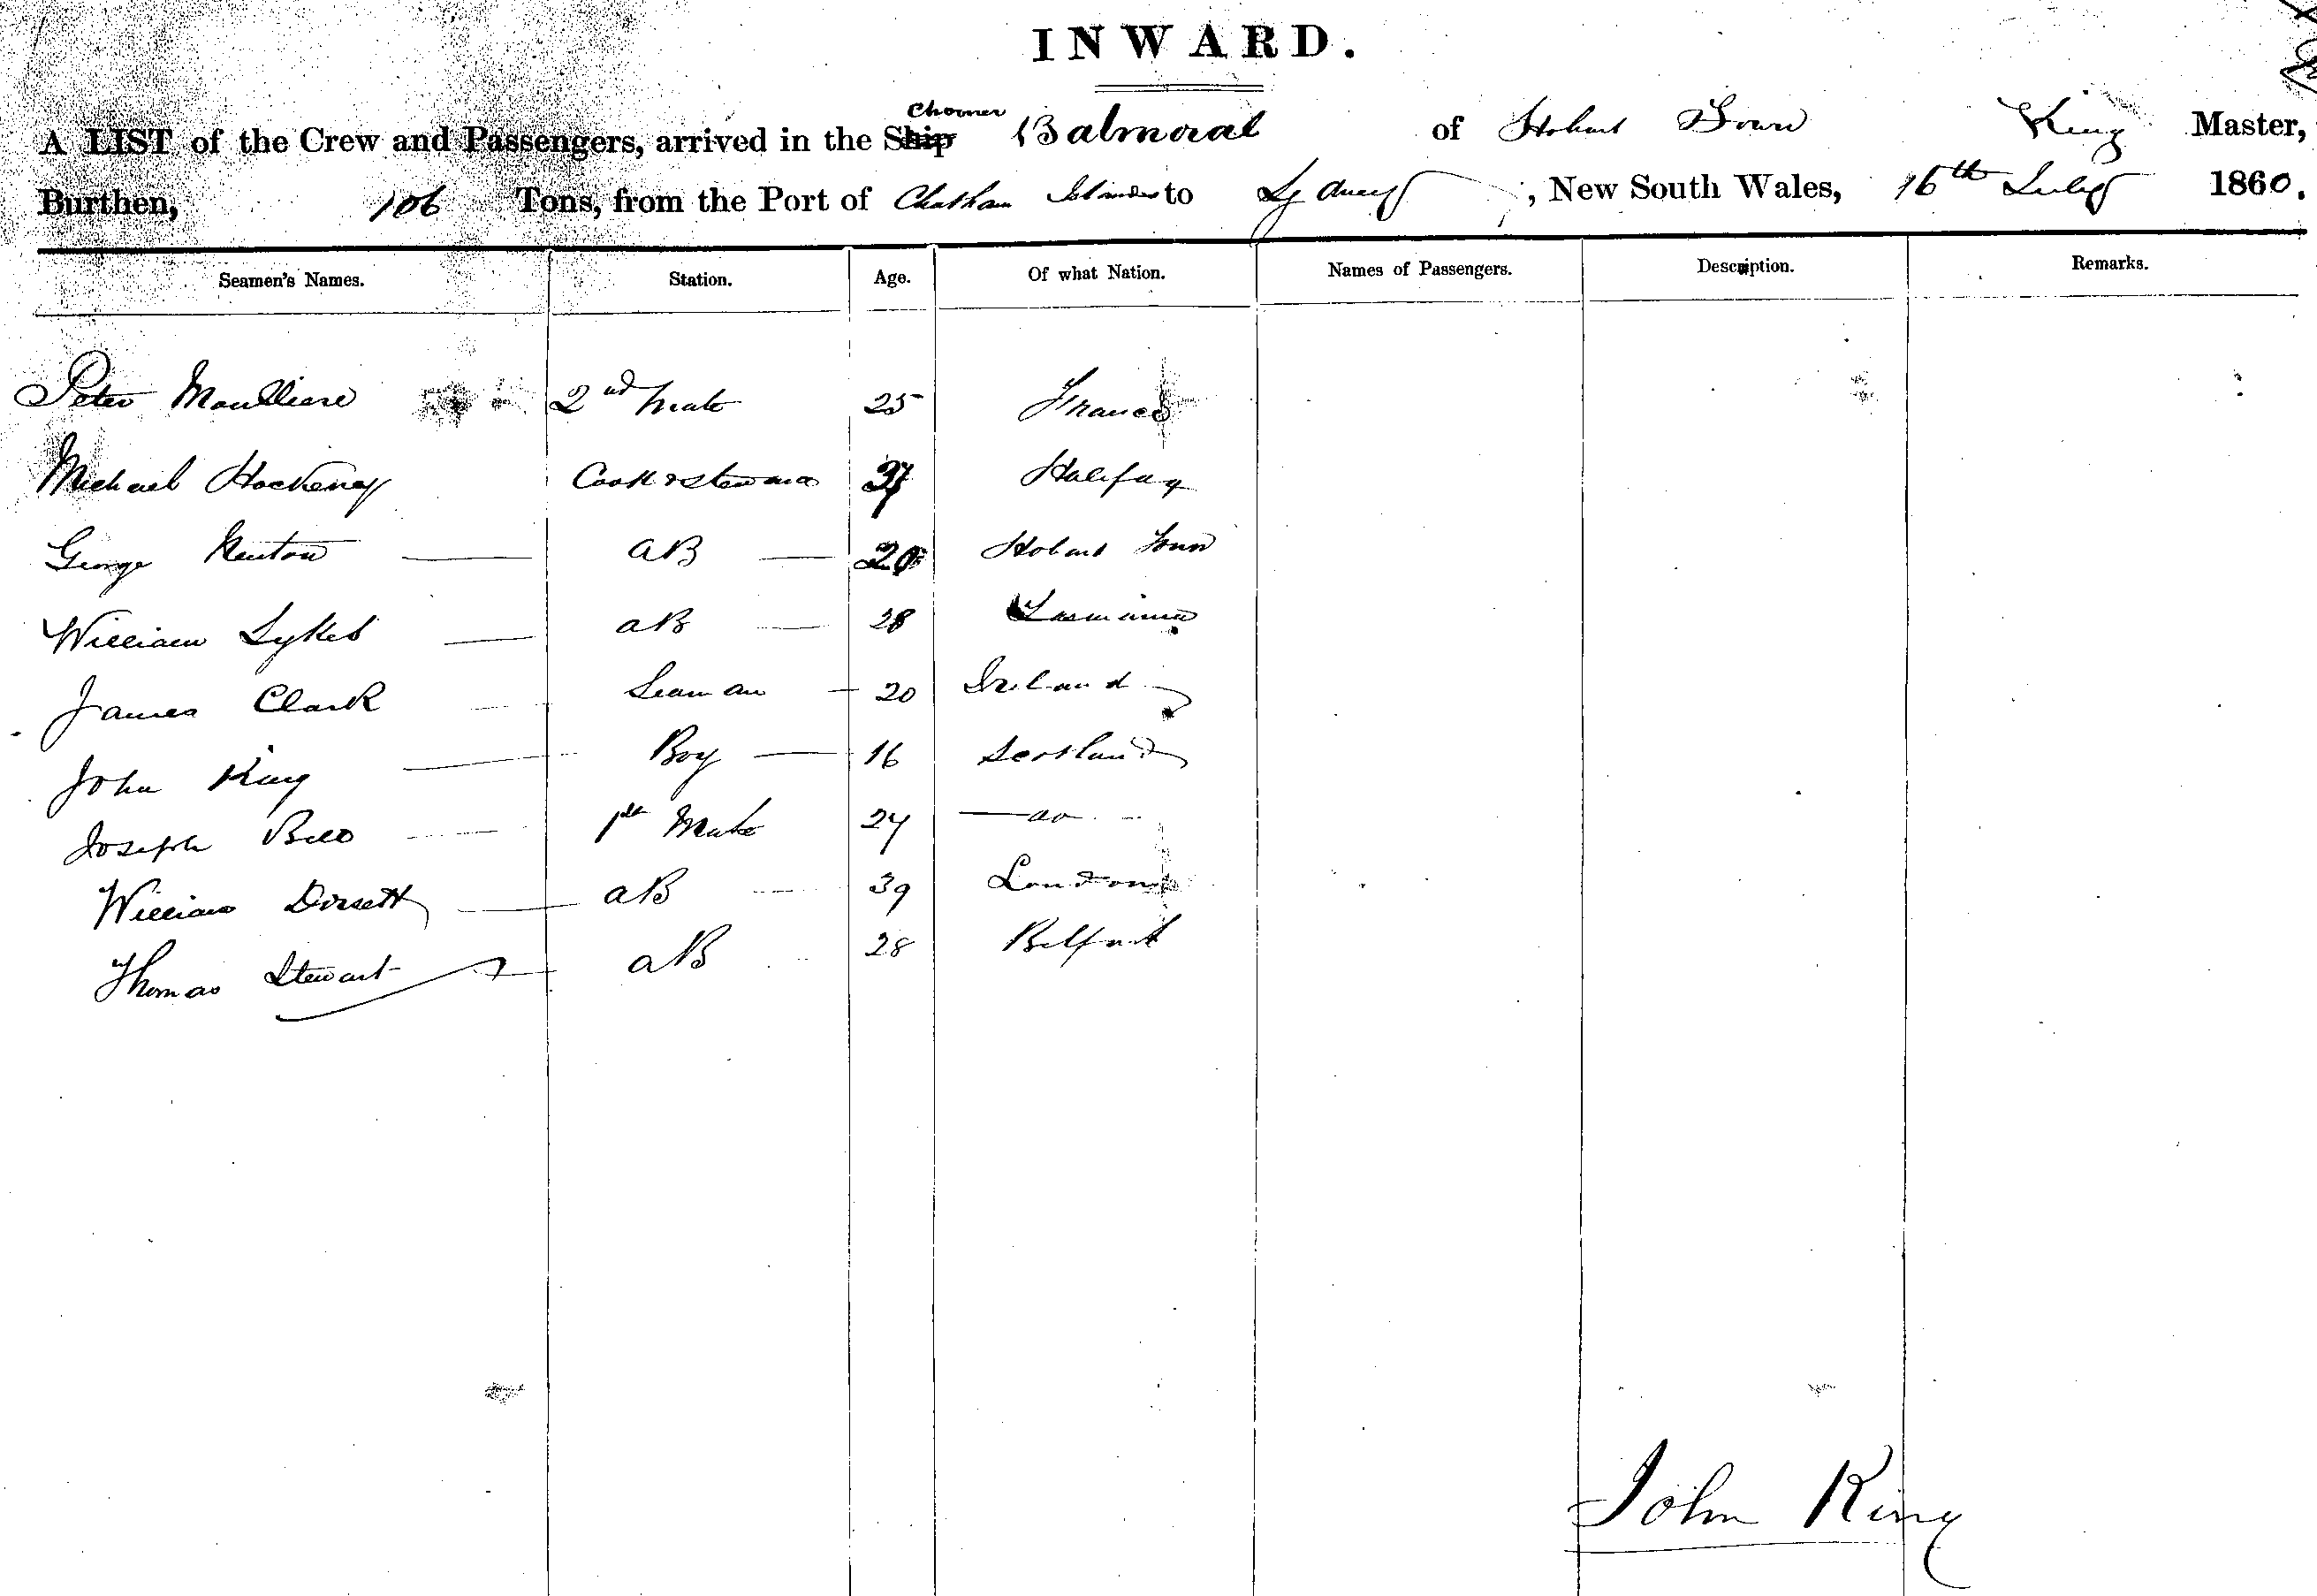 INWARD.
Chooner
A LIST of the Crew and Passengers, arrived in the Ship Balmoral of Hobart Town King Master,
Burthen, 106 Tons, from the Port of Chatham Islands to Sydney, New South Wales, 16th July 1860.
Seamen's Names. Station. Age. Of what Nation. Names of Passengers. Description. Remarks.
Peter 2nd Mate 25 France
Michael Hockeney Cook & Steward 37 Halifax
George AB 20 Hobart Town
William Sykes AB 28 Tasmania
James Clark Seaman 20 Ireland
John King Boy 16 Scotland
Joseph Bell 1st Mate 24 do
William Dorsett AB 39 London
Thomas Stewart AB 28 Belfast
John King